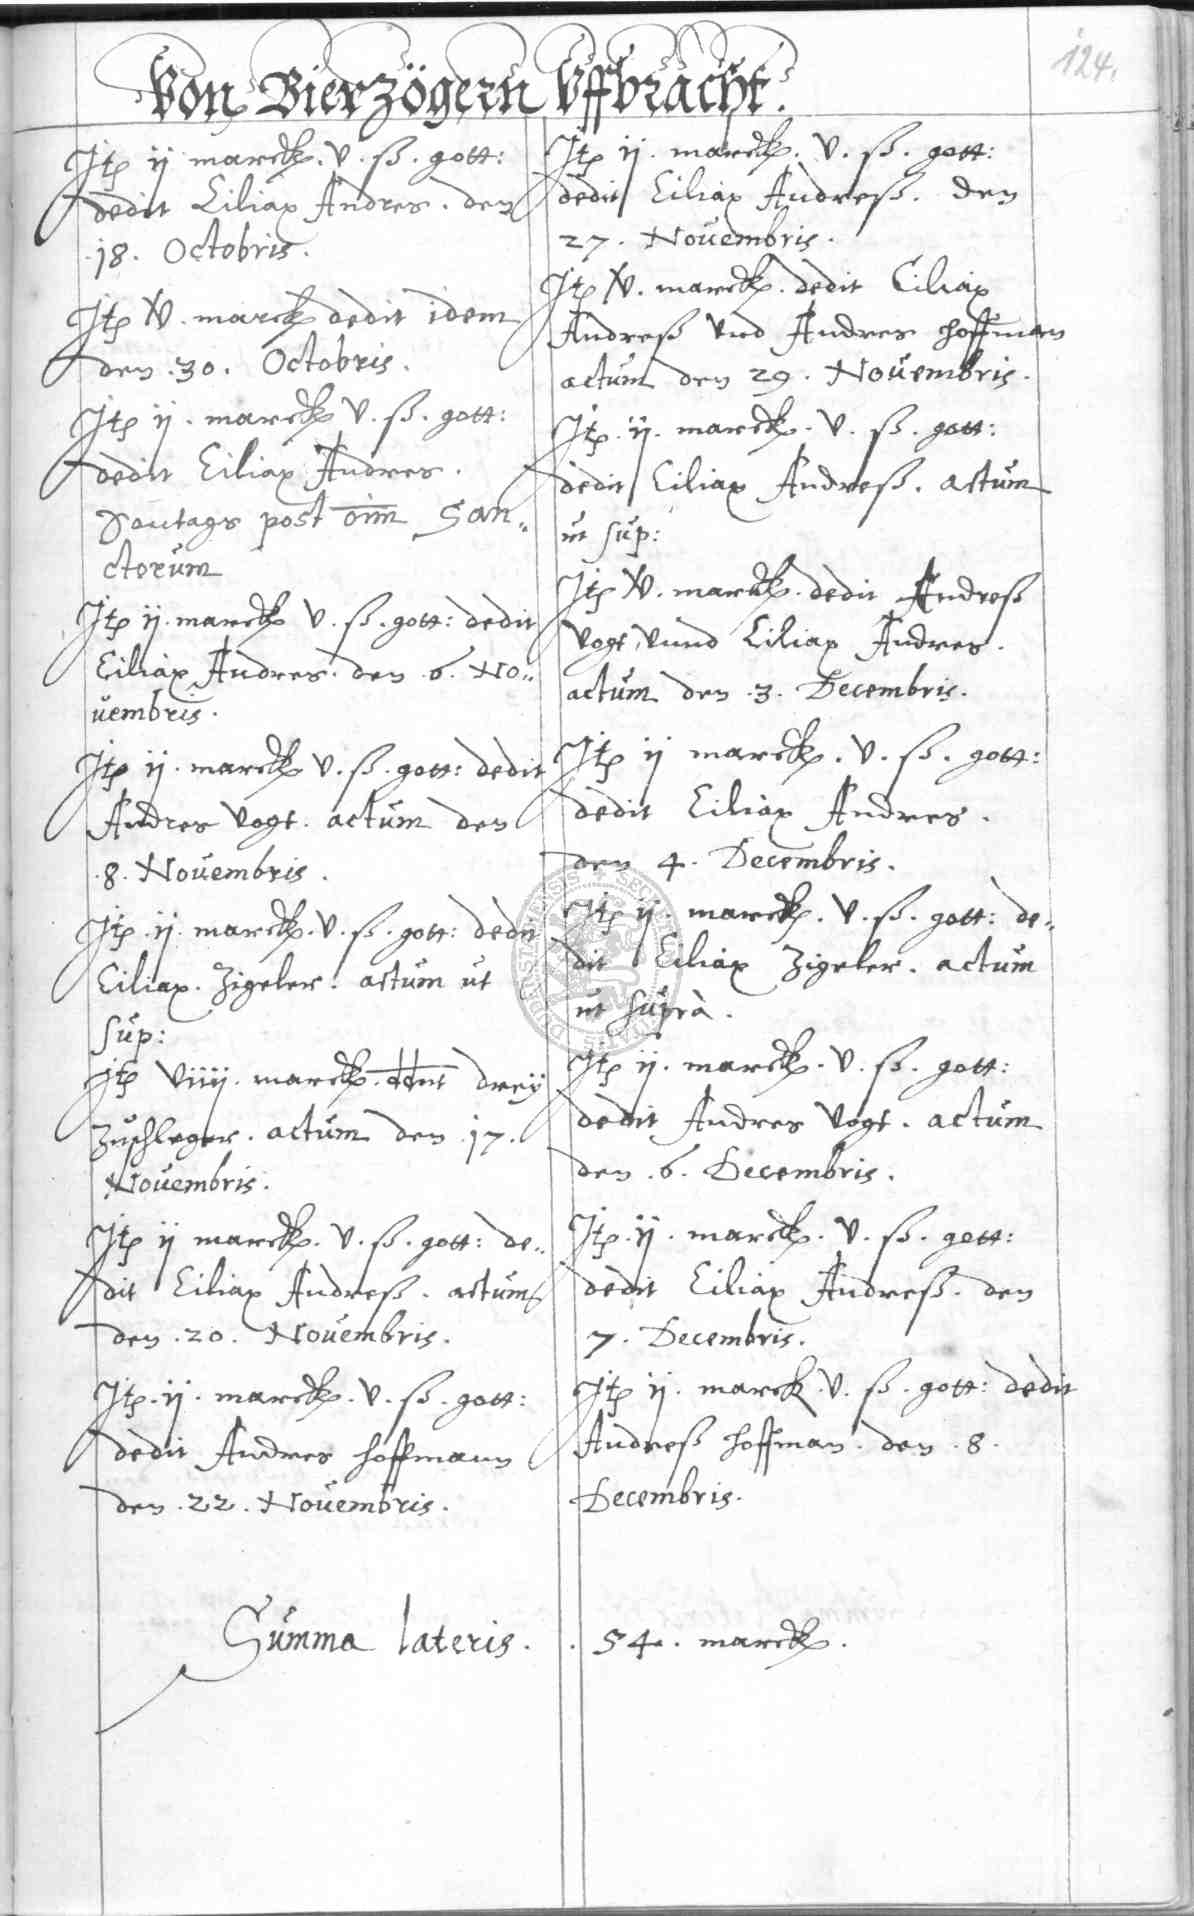 124.
Von Bierzögern Uffbracht.
Itp ij marckp. v. ß. gott:
dedit Ciliax Andres. den
.18. Octobris.
Itp v. marckp dedit idem
den .30. Octobris.
Itp ij. marckp v. ß. gott:
dedit Ciliax Andres.
Sontags post oim San„
ctorum
Itp ij. marckp v. ß. gott: dedit
Ciliax Andres. den .6. No„
uembris.
Itp ij. marckp v. ß. gott: dedit
Andres Vogt. actum den
.8. Nouembris.
Itp ij. marckp. v. ß. gott: dedit
Ciliax. Zigeler. actum ut
sup:
Itp viiij. marckp. ddnt dreÿ
Zuschleger. actum den .17.
Nouembris.
Itp ij marckp. v. ß. gott: de„
dit Ciliax Andreß. actum
den .20. Nouembris.
Itp. ij. marckp. v. ß. gott:
dedit Andres Hoffmann
den .22. Nouembris.
Itp ij. marckp. v. ß. gott:
dedit Ciliax Andreß. den
27. Nouembris.
Itp v. marckp. dedit Ciliax
Andreß vnd Andres Hoffman
actum den 29. Nouembris.
Itp. ij. marckp. v. ß. gott:
dedit Ciliax Andreß. actum
ut sup:
Itp v. marckp. dedit Andreß
Vogt vnnd Ciliax Andres.
actum den .3. Decembris.
Itp ij marckp. v. ß. gott:
dedit Ciliax Andres.
den 4. Decembris.
Itp ij. marckp. v. ß. gott: de„
dit Ciliax Zigeler. actum
ut suprà.
Itp ij. marckp. v. ß. gott:
dedit Andres Vogt. actum
den .6. Decembris.
Itp. ij. marckp. v. ß. gott:
dedit Ciliax Andreß. den
7. Decembris.
Itp ij. marck. v. ß. gott: dedit
Andreß Hoffman. den .8.
Decembris.
Summa lateris. . 54. marckp.